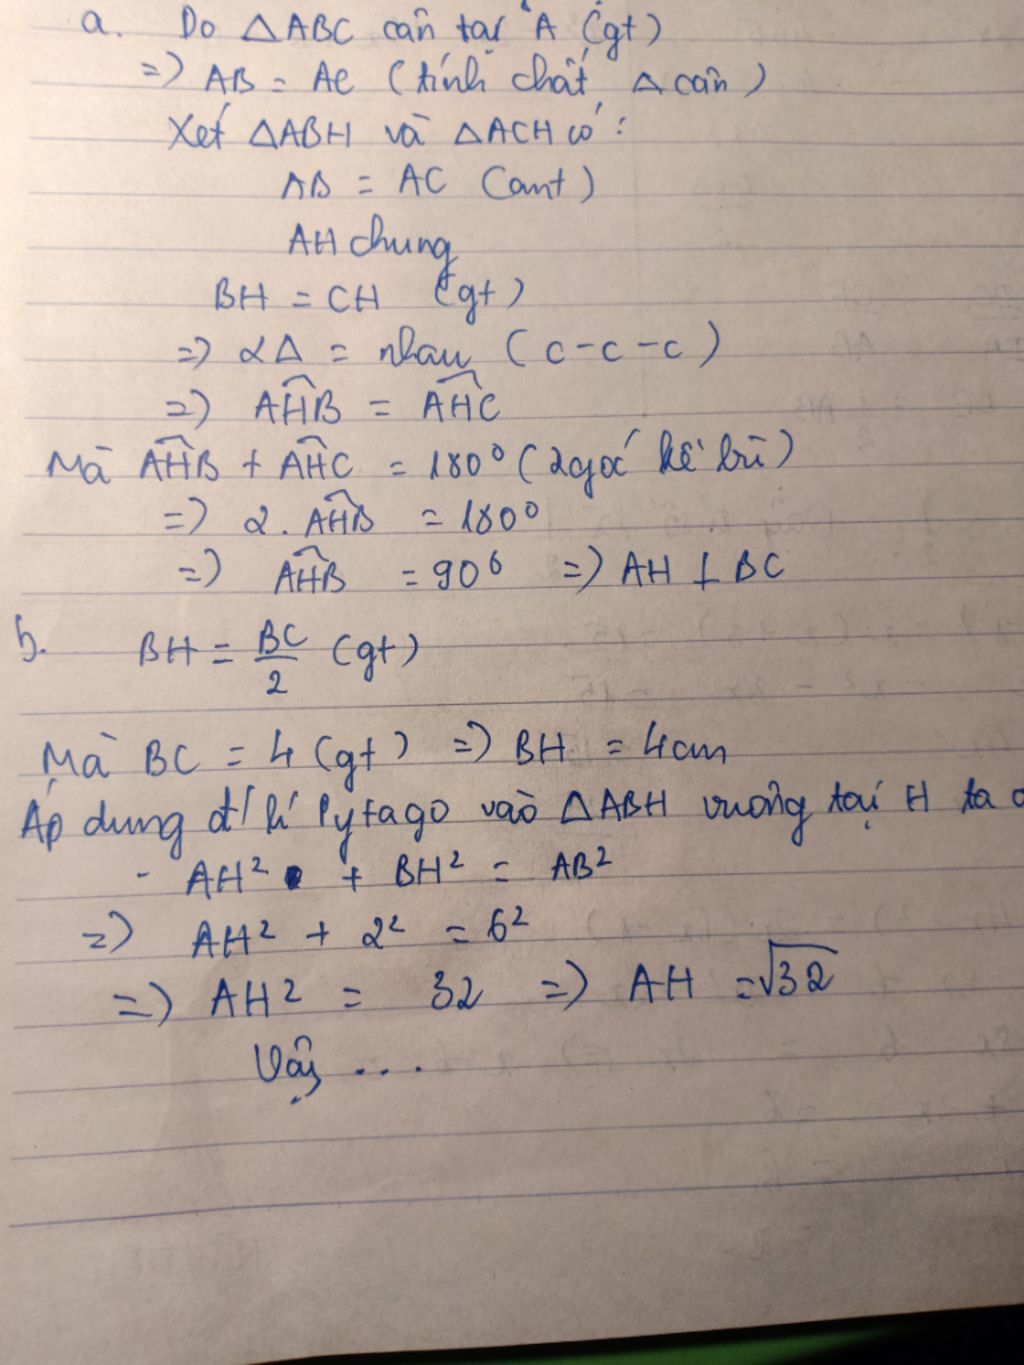 a. Do △ABC cân tại A (gt)
=> AB = AC (tính chất △ cân)
Xét △ABH và △ACH có :
AB = AC (cmt)
AH chung
BH = CH (gt)
=> 2△ = nhau (c-c-c)
=> AĤB = AĤC
Mà AĤB + AĤC = 180° (2 góc kề bù)
=> 2. AĤB = 180°
=> AĤB = 90° => AH ⊥ BC
b. BH = BC/2 (gt)
Mà BC = 4 (gt) => BH = 4cm
Áp dụng đ/lí Pytago vào △ABH vuông tại H ta c
- AH² + BH² = AB²
=> AH² + 2² = 6²
=> AH² = 32 => AH = √32
Vậy ...